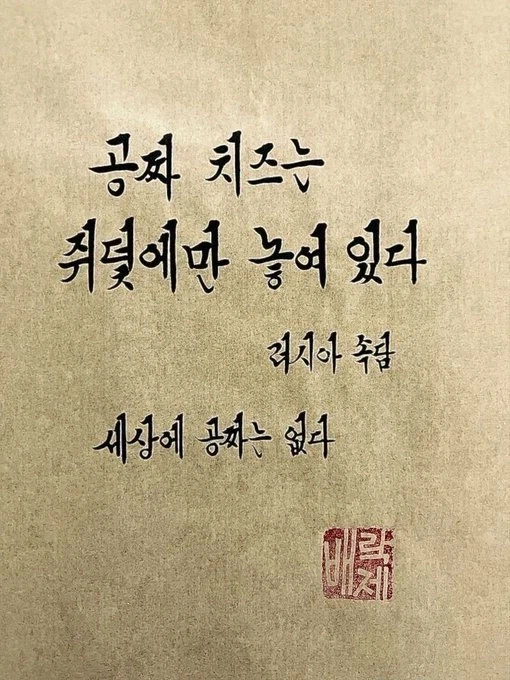 공짜 치즈는
쥐덫에만 놓여 있다
러시아 속담
세상에 공짜는 없다
배락제